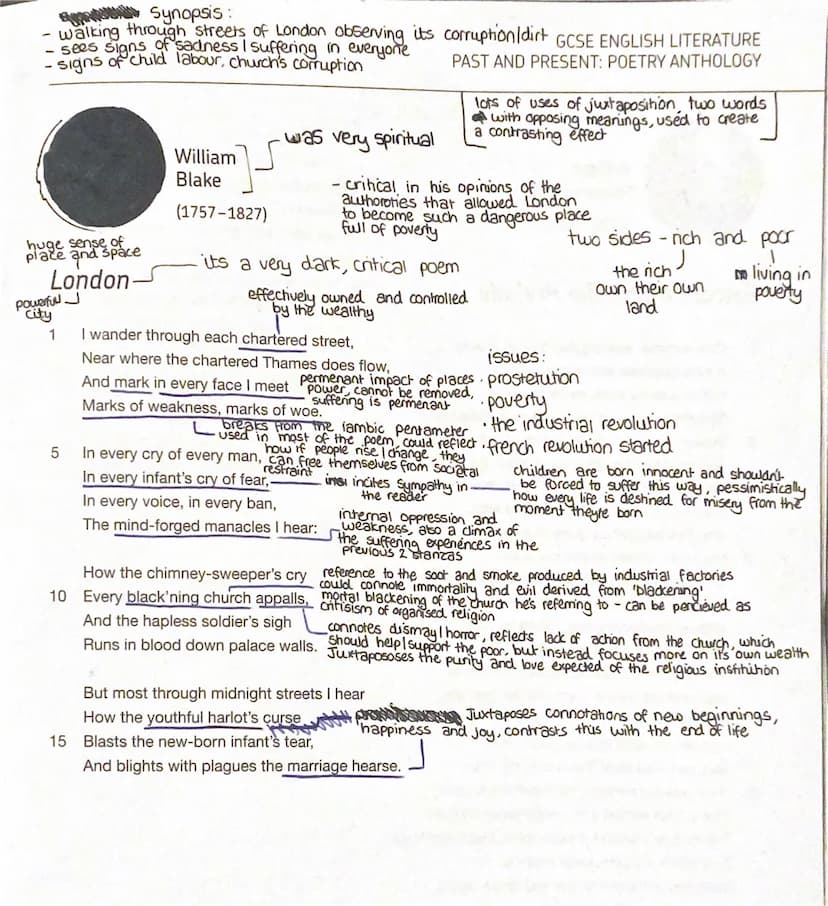 Synopsis:
- walking through streets of London observing its corruption/dirt
- sees signs of sadness/suffering in everyone
- signs of child labour, church's corruption
GCSE ENGLISH LITERATURE
PAST AND PRESENT: POETRY ANTHOLOGY
lots of uses of juxtaposition, two words
with opposing meanings, used to create
a contrasting effect
William
Blake
(1757–1827)
was very spiritual
- critical in his opinions of the
authoroties that allowed London
to become such a dangerous place
full of poverty
two sides - rich and poor
the rich
own their own
land
living in
poverty
huge sense of
place and space
London
its a very dark, critical poem
powerful
city
effectively owned and controlled
by the wealthy
1 I wander through each chartered street,
Near where the chartered Thames does flow,
And mark in every face I meet
Marks of weakness, marks of woe.
permenant impact of places
power, cannot be removed,
suffering is permenant
issues:
· prostetution
· poverty
· the industrial revolution
· french revolution started
breaks from the iambic pentameter
used in most of the poem, could reflect
how if people rise/change, they
can free themselves from societal
restraint
5 In every cry of every man,
In every infant's cry of fear,
In every voice, in every ban,
The mind-forged manacles I hear:
incites sympathy in
the reader
children are born innocent and shouldn't
be forced to suffer this way, pessimistically
how every life is destined for misery from the
moment theyre born
internal oppression and
weakness, also a climax of
the suffering experiences in the
previous 2 stanzas
How the chimney-sweeper's cry
10 Every black'ning church appalls,
And the hapless soldier's sigh
Runs in blood down palace walls.
reference to the soot and smoke produced by industrial factories
could connote immortality and evil derived from 'blackening'
mortal blackening of the church he's referring to - can be percieved as
critisism of organised religion
connotes dismay/horror, reflects lack of action from the church, which
should help/support the poor, but instead focuses more on it's own wealth
Juxtapososes the purity and love expected of the religious institution
But most through midnight streets I hear
How the youthful harlot's curse
15 Blasts the new-born infant's tear,
And blights with plagues the marriage hearse.
Juxtaposes connotations of new beginnings,
happiness and joy, contrasts this with the end of life